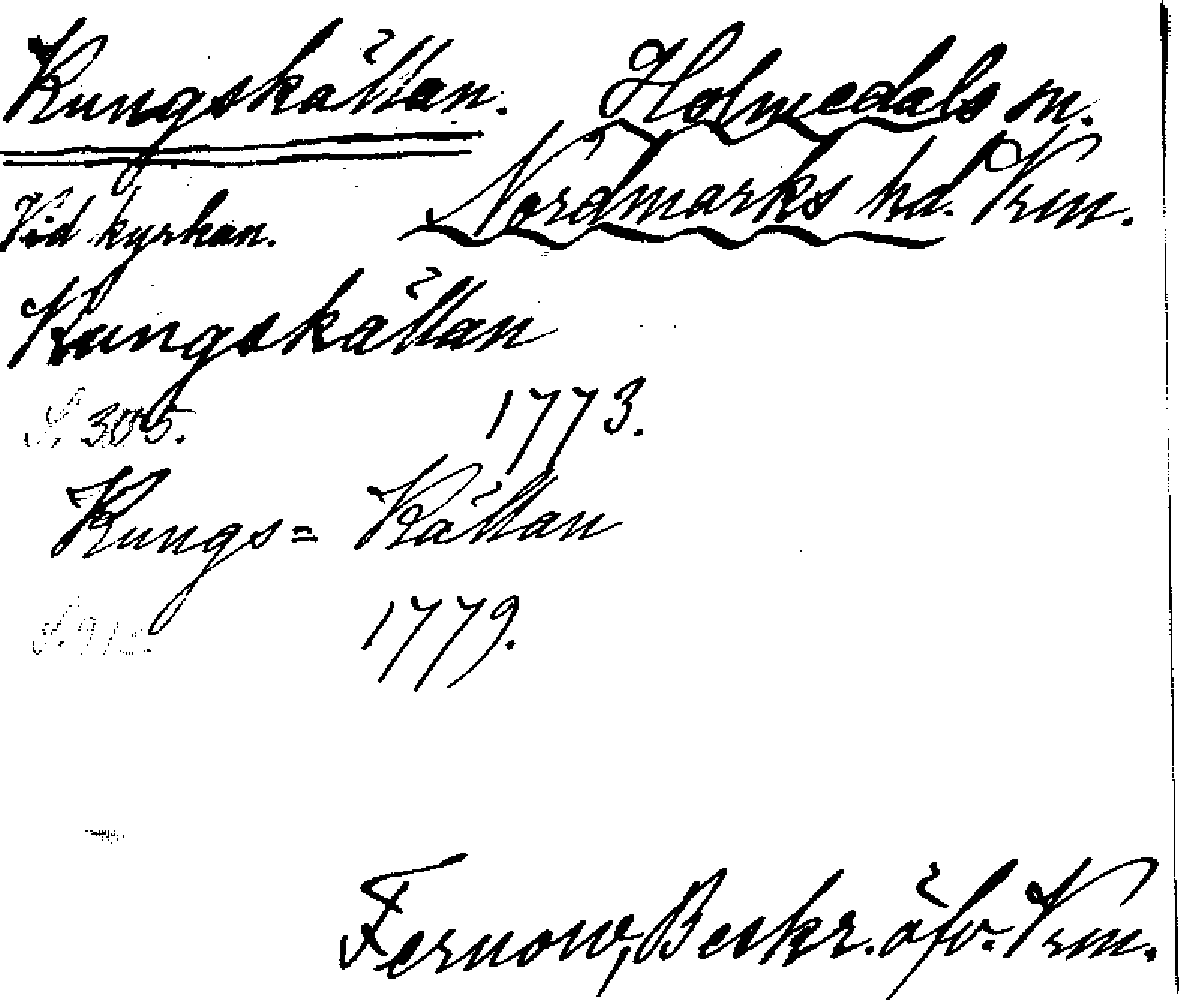 Kungskällan. Holmedals sn.
Vid kyrkan. Nordmarks hd. Vrm.
Kungskällan
S. 305. 1773.
Kungs= Källan
1779.
Fernow, Beskr. öfv. Vrm.